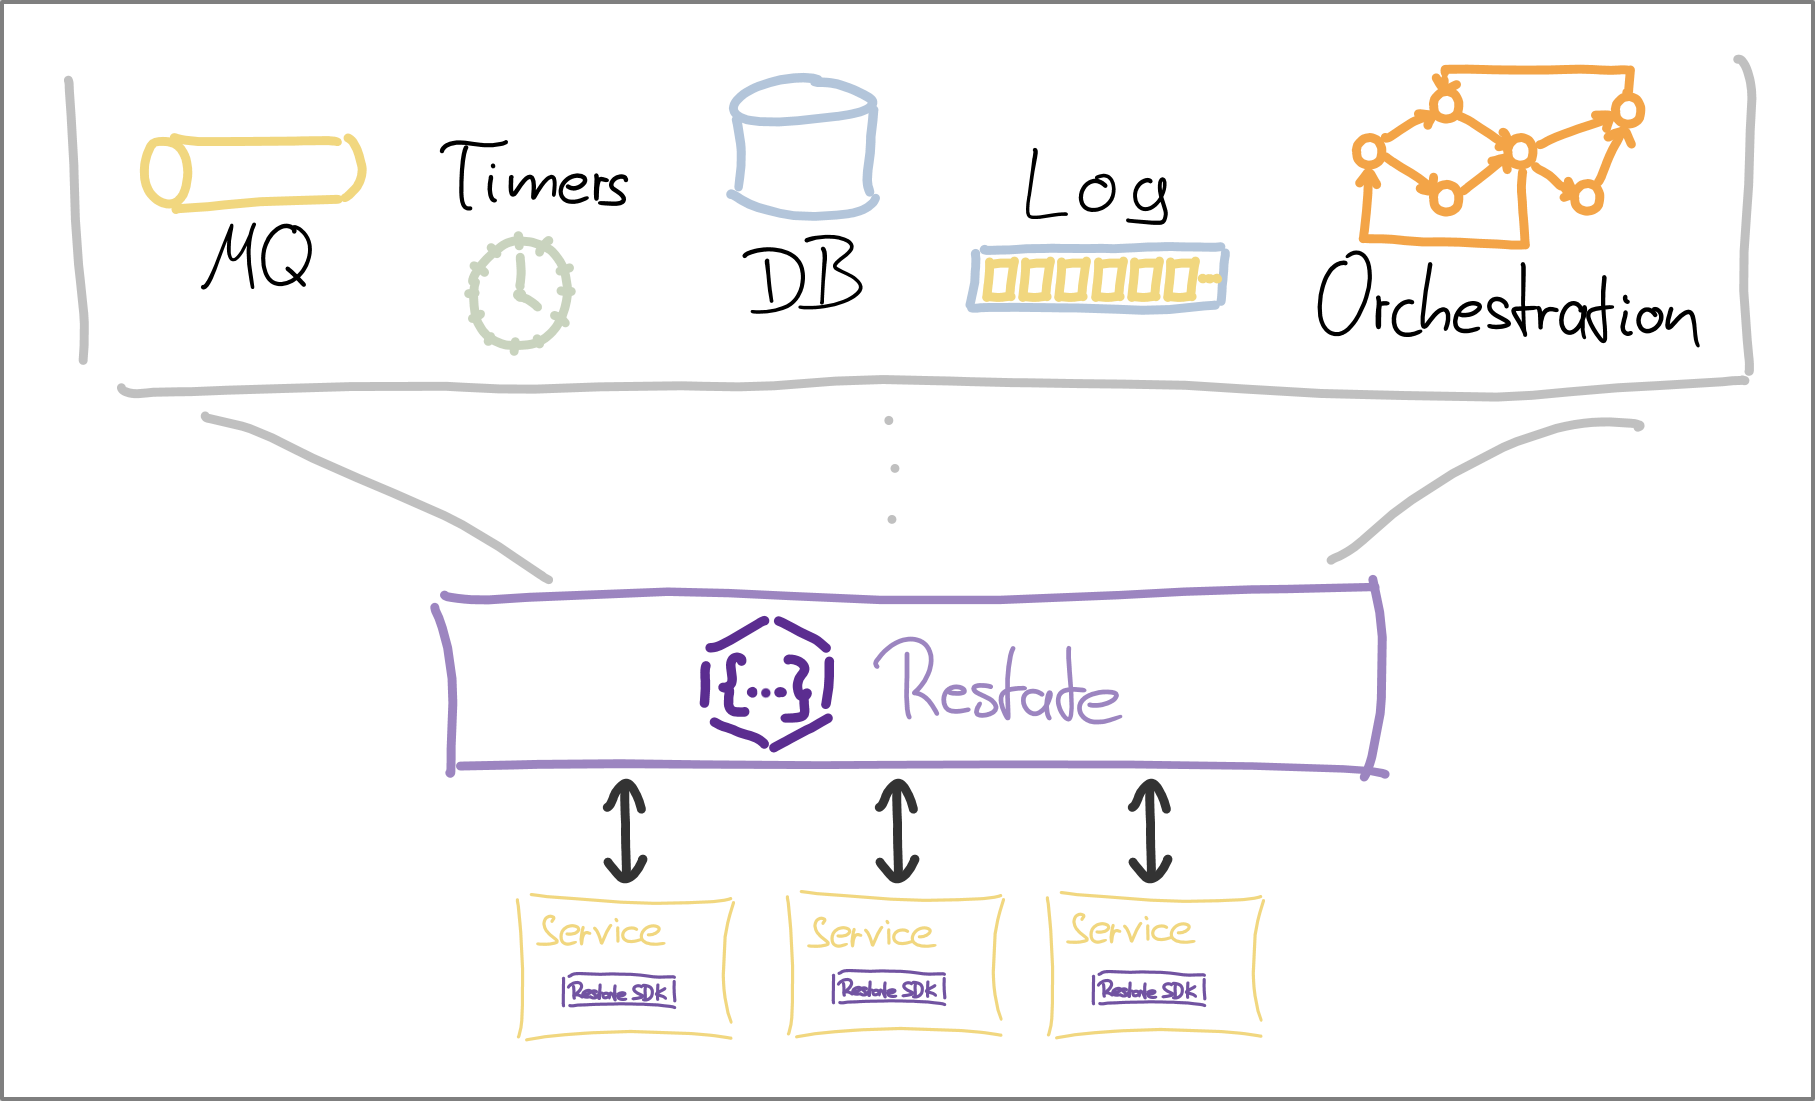 MQ
Timers
DB
Log
Orchestration
{...} Restate
Service
Restate SDK
Service
Restate SDK
Service
Restate SDK